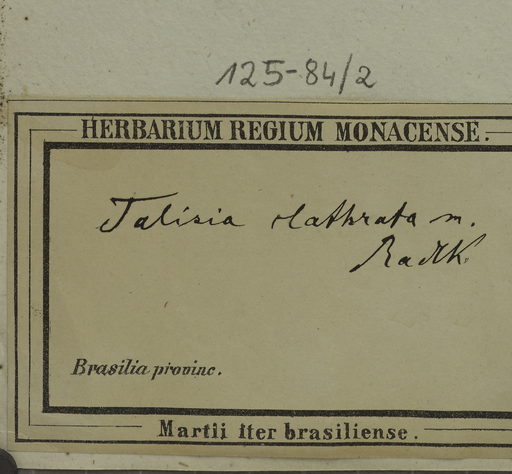 125-84/2
HERBARIUM REGIUM MONACENSE.
Talisia clathrata m.
Radlk.
Brasilia provinc.
Martii iter brasiliense.